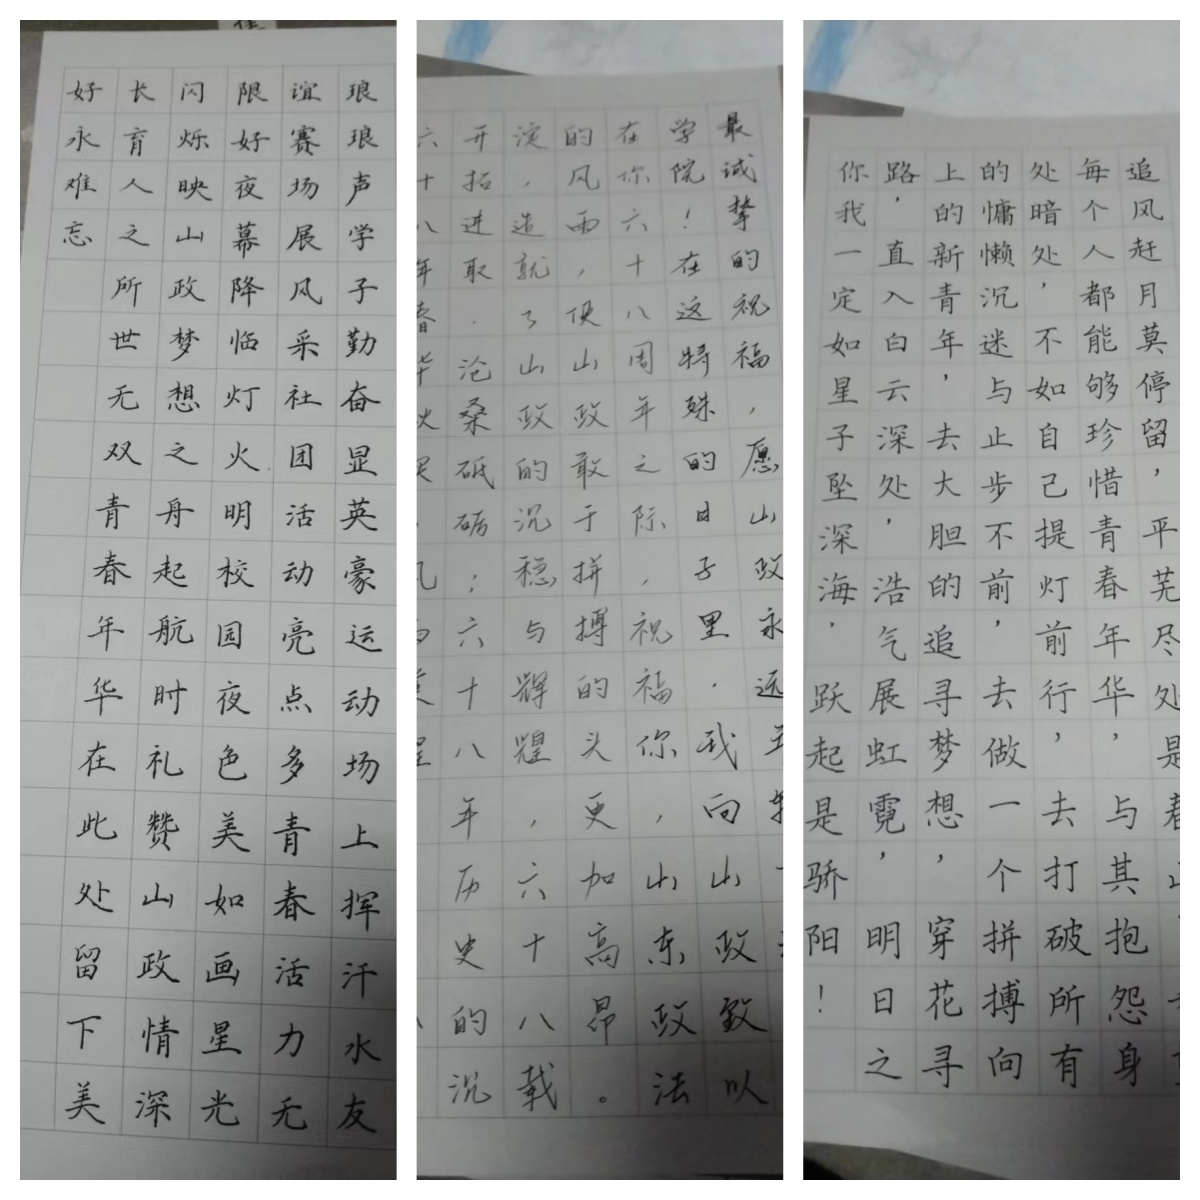 琅琅声学子勤奋显英豪运动场上挥汗水友
谊赛场展风采社团活动亮点多青春活力无
限好夜幕降临灯火明校园夜色美如画星光
闪烁映山政梦想之舟起航时礼赞山政情深
长育人之所世无双青春年华在此处留下美
好永难忘
最诚挚的祝福，愿山政永远
学院！在这特殊的日子里，我向山政致以
在你六十八周年之际，祝福你，山东政法
的风雨，使山政敢于拼搏的头更加高昂。
淀，造就了山政的沉稳与辉煌，六十八载
开拓进取．沧桑砥砺；六十八年历史的沉
六十八年春华
追风赶月莫停留，平芜尽处是春
每个人都能够珍惜青春年华，与其抱怨身
处暗处，不如自己提灯前行，去打破所有
的慵懒沉迷与止步不前，去做一个拼搏向
上的新青年，去大胆的追寻梦想，穿花寻
路，直入白云深处，浩气展虹霓，明日之
你我一定如星子坠深海，跃起是骄阳！